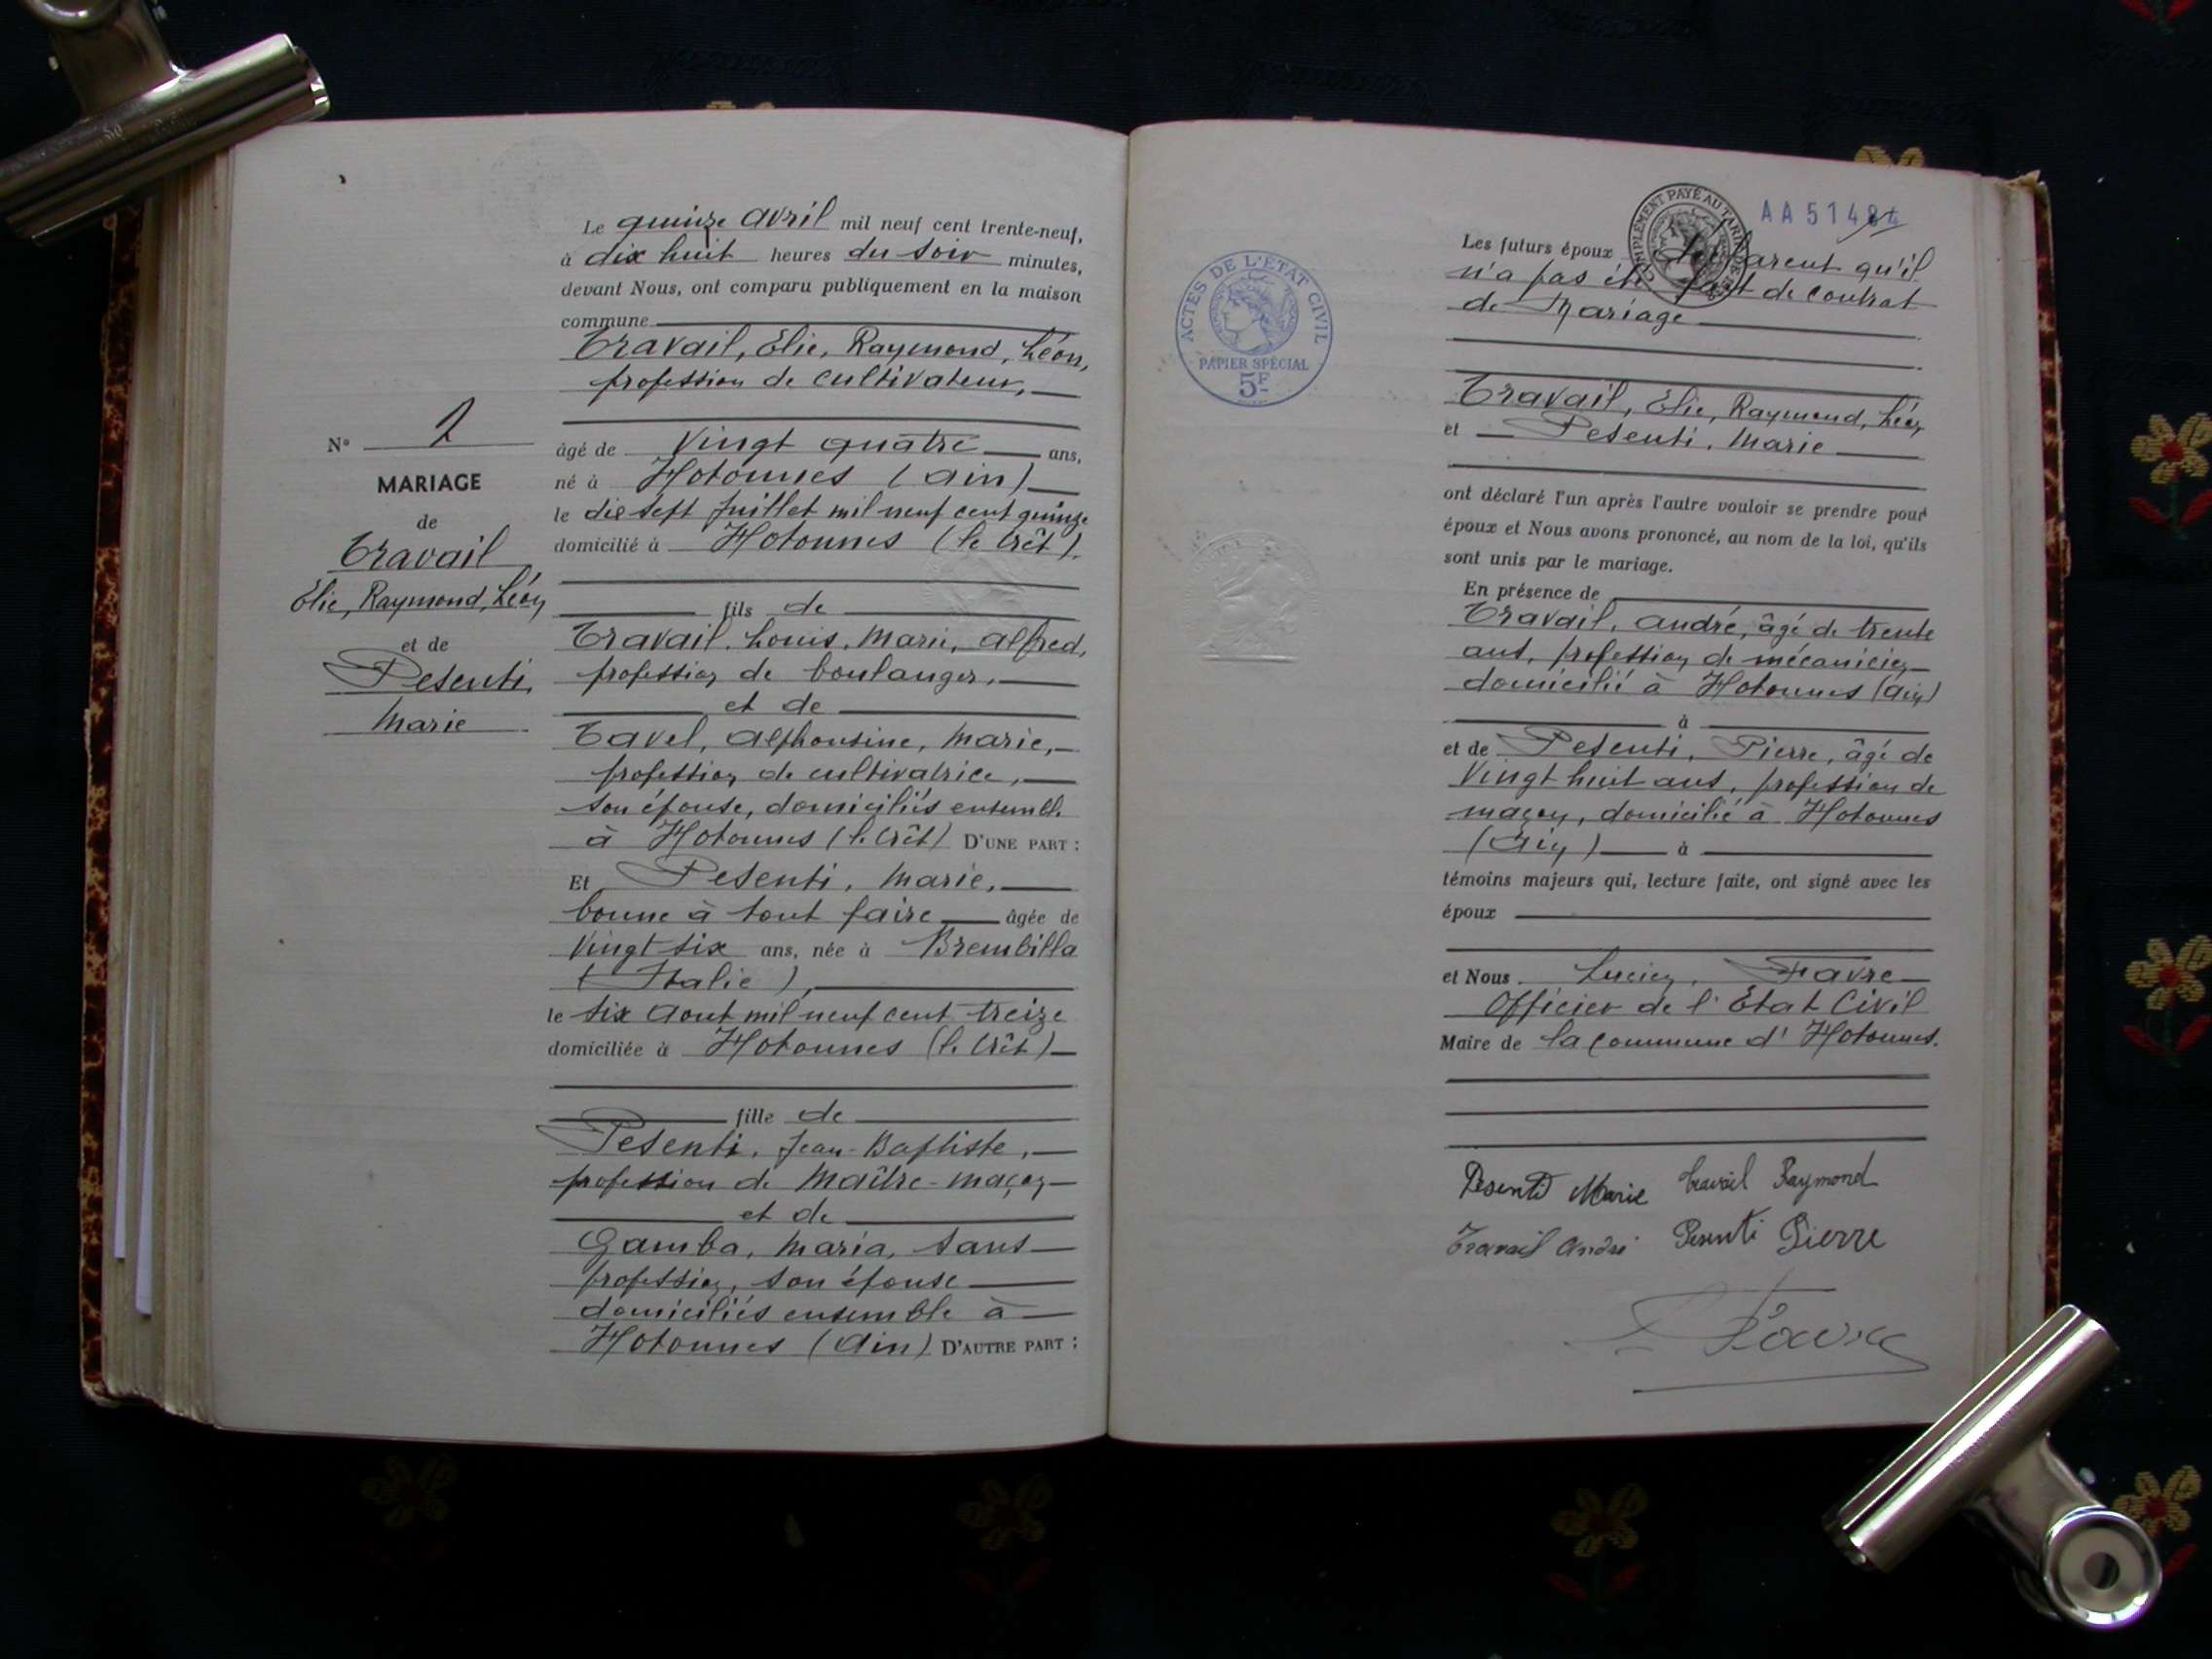 Le quinze avril mil neuf cent trente-neuf,
à dix huit heures du soir minutes,
devant Nous, ont comparu publiquement en la maison
commune
Travail, Elie, Raymond, Léon,
profession de cultivateur,
N° 2
MARIAGE
de
Travail
Elie, Raymond, Léon
et de
Pesenti,
Marie
âgé de Vingt quatre ans,
né à Hotonnes (Ain)
le dix sept Juillet mil neuf cent quinze
domicilié à Hotonnes (le Crêt).
fils de
Travail, Louis, Marie, Alfred,
profession de boulanger,
et de
Tavel, Alphonsine, Marie,
profession de cultivatrice,
son épouse, domiciliés ensemble
à Hotonnes (le Crêt) D'UNE PART :
Et Pesenti, Marie,
bonne à tout faire âgée de
Vingt six ans, née à Brembilla
(Italie),
le six Aout mil neuf cent treize
domiciliée à Hotonnes (le Crêt)
fille de
Pesenti, Jean-Baptiste,
profession de Maître-maçon
et de
Gamba, Maria, sans
profession, son épouse
domiciliés ensemble à
Hotonnes (Ain) D'AUTRE PART :
ACTES DE L'ÉTAT CIVIL
PAPIER SPÉCIAL
5F
COMPLÉMENT PAYÉ AU TARIF
AA 514
Les futurs époux déclarent qu'il
n'a pas été fait de contrat
de Mariage
Travail, Elie, Raymond, Léon
et Pesenti, Marie
ont déclaré l'un après l'autre vouloir se prendre pour
époux et Nous avons prononcé, au nom de la loi, qu'ils
sont unis par le mariage.
En présence de
Travail, André, âgé de trente
ans, profession de mécanicien
domicilié à Hotonnes (Ain)
à
et de Pesenti, Pierre, âgé de
Vingt huit ans, profession de
maçon, domicilié à Hotonnes
(Ain) à
témoins majeurs qui, lecture faite, ont signé avec les
époux
et Nous Lucien, Favre
Officier de l'Etat Civil
Maire de la Commune d'Hotonnes.
Pesenti Marie Travail Raymond
Travail André Pesenti Pierre
Favre